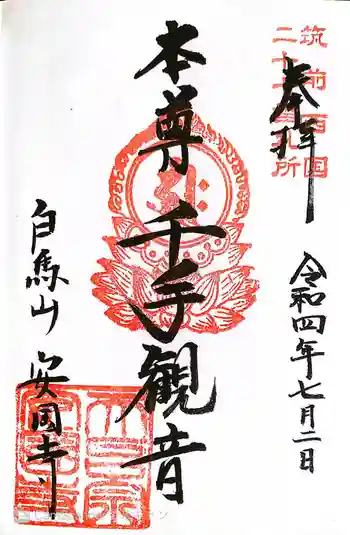 奉拝
筑前西国
二十 番札所
令和四年七月二日
本尊千手観音
白馬山 安国寺